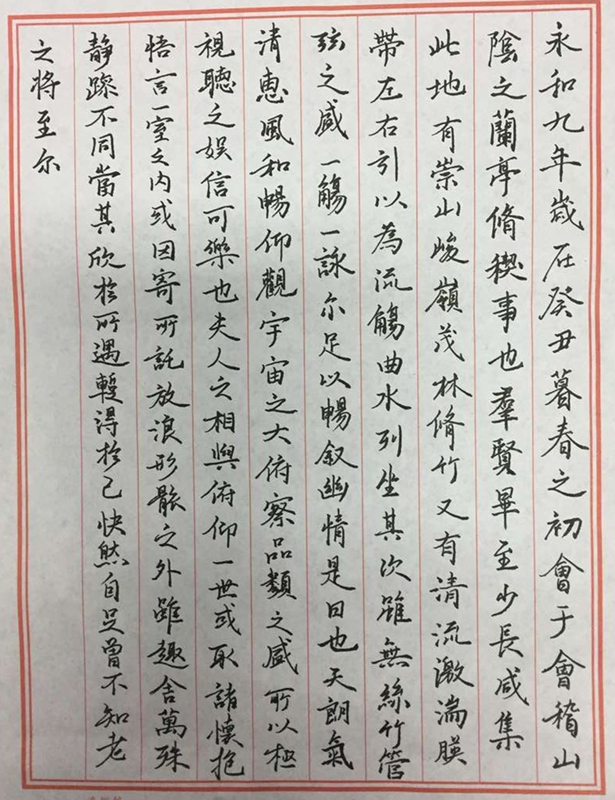 永和九年歲在癸丑暮春之初會于會稽山
陰之蘭亭脩稧事也羣賢畢至少長咸集
此地有崇山峻嶺茂林脩竹又有清流激湍暎
帶左右引以為流觴曲水列坐其次雖無絲竹管
弦之盛一觴一詠尔足以暢叙幽情是日也天朗氣
清惠風和暢仰觀宇宙之大俯察品類之盛所以極
視聽之娱信可樂也夫人之相與俯仰一世或取諸懷抱
悟言一室之内或因寄所託放浪形骸之外雖趣舎萬殊
静躁不同當其欣於所遇蹔得於己快然自足曾不知老
之將至尔